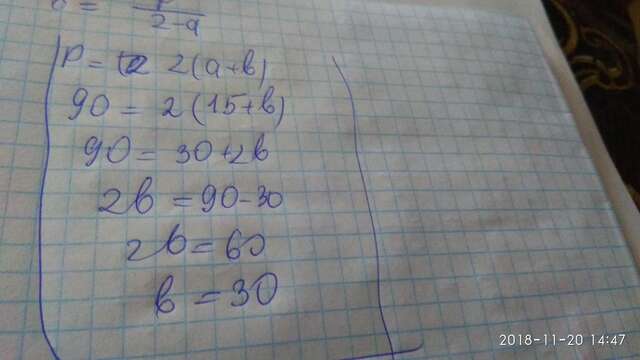 P = 2(a+b)
90 = 2(15+b)
90 = 30+2b
2b = 90-30
2b = 60
b = 30
2018-11-20 14:47